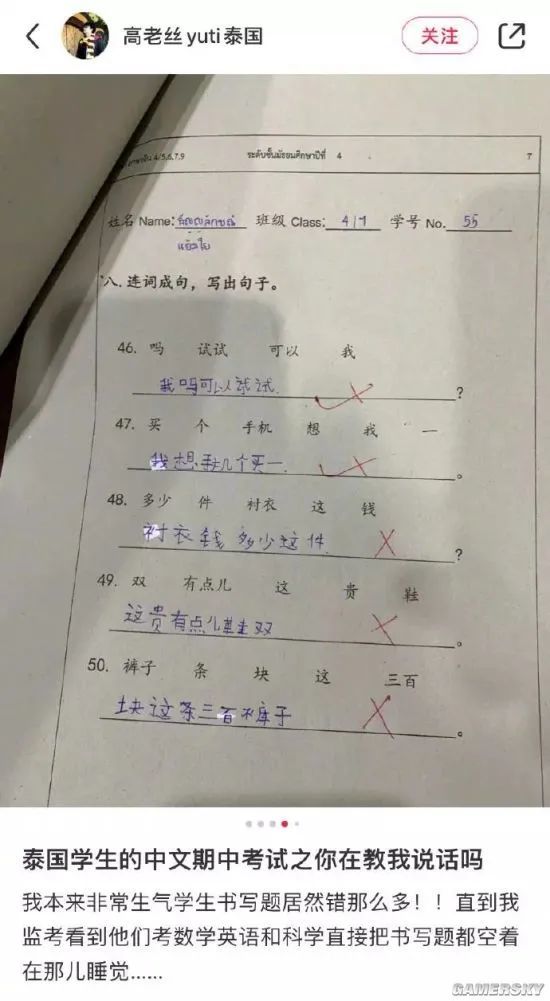 高老丝yuti泰国
关注
ภาษาจีน 4/5,6,7,9 ระดับชั้นมัธยมศึกษาปีที่ 4 7
姓名 Name: 班级 Class: 4/7 学号 No. 55
八. 连词成句，写出句子。
46. 吗 试试 可以 我
我吗可以试试 ?
47. 买 个 手机 想 我 一
我想手机个买一 。
48. 多少 件 衬衣 这 钱
衬衣钱多少这件 ?
49. 双 有点儿 这 贵 鞋
这贵有点儿鞋双 。
50. 裤子 条 块 这 三百
块这条三百裤子 。
泰国学生的中文期中考试之你在教我说话吗
我本来非常生气学生书写题居然错那么多！！直到我
监考看到他们考数学英语和科学直接把书写题都空着
在那儿睡觉......
GAMERSKY